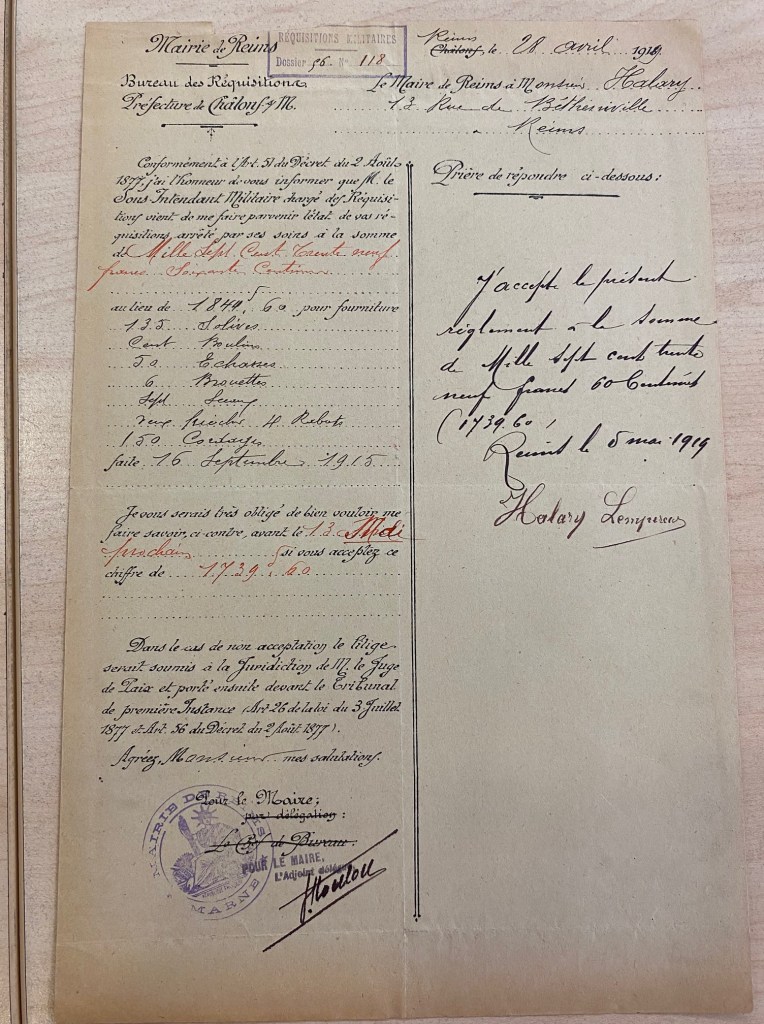 Mairie de Reims
RÉQUISITIONS MILITAIRES
Dossier 56 N° 118
Bureau des Réquisitions
Préfecture de Châlons s/ M.
Reims
Châlons, le 28 avril 1919
Le Maire de Reims à Monsieur Halary
13 Rue de Bétheniville
à Reims
Conformément à l'Art. 51 du Décret du 2 Août
1877, j'ai l'honneur de vous informer que M. le
Sous Intendant Militaire chargé des Réquisi-
tions vient de me faire parvenir l'état de vos ré-
quisitions, arrêté par ses soins à la somme
de Mille Sept Cent Trente neuf
francs Soixante Centimes
au lieu de 1849f,60 pour fourniture
135 Solives
Cent Boulins
50 Echasses
6 Brouettes
Sept
4 Rabots
150 Cordages
faite 16 Septembre 1915
Je vous serais très obligé de bien vouloir me
faire savoir, ci-contre, avant le 13 Mai
prochain si vous acceptez ce
chiffre de 1739f,60
Dans le cas de non acceptation le litige
serait soumis à la Juridiction de M. le Juge
de Paix et porté ensuite devant le Tribunal
de première Instance (Art. 26 de la loi du 3 Juillet
1877 & Art. 56 du Décret du 2 Août 1877).
Agréez, Monsieur mes salutations.
Pour le Maire;
par délégation:
Le Chef de Bureau:
POUR LE MAIRE,
L'Adjoint délégué
MAIRIE DE REIMS
MARNE
Prière de répondre ci-dessous:
J'accepte le présent
réglement à la somme
de Mille sept cent trente
neuf francs 60 Centimes
(1739.60)
Reims le 5 mai 1919
Halary Lempereur